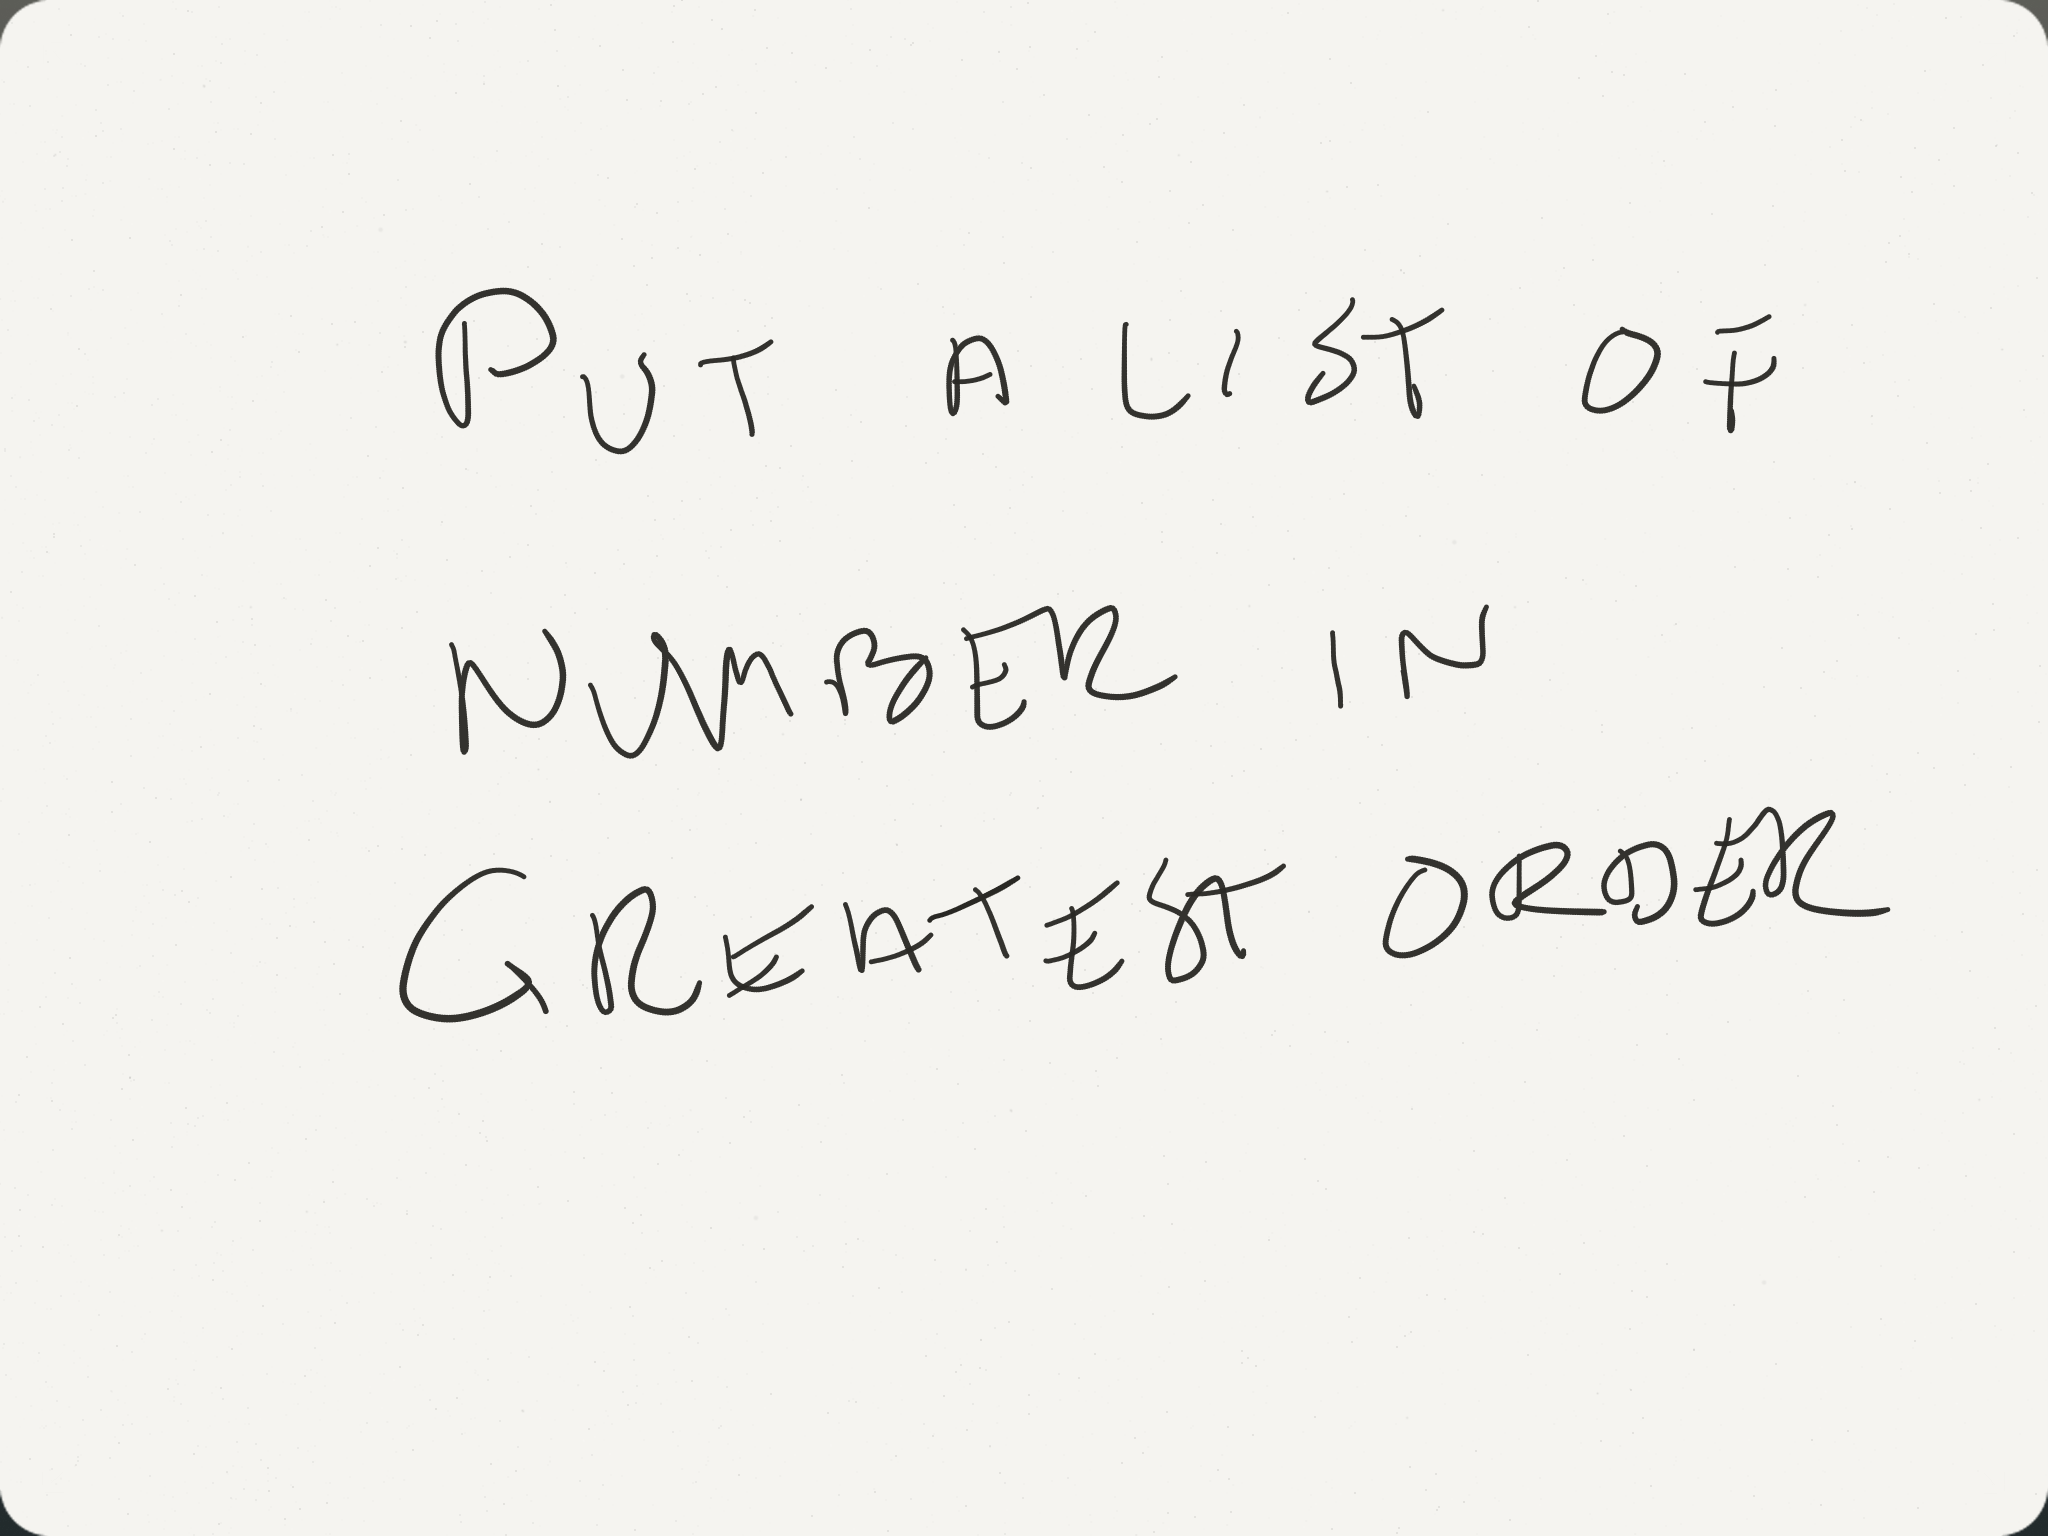 PUT A LIST OF
NUMBER IN
GREATEST ORDER